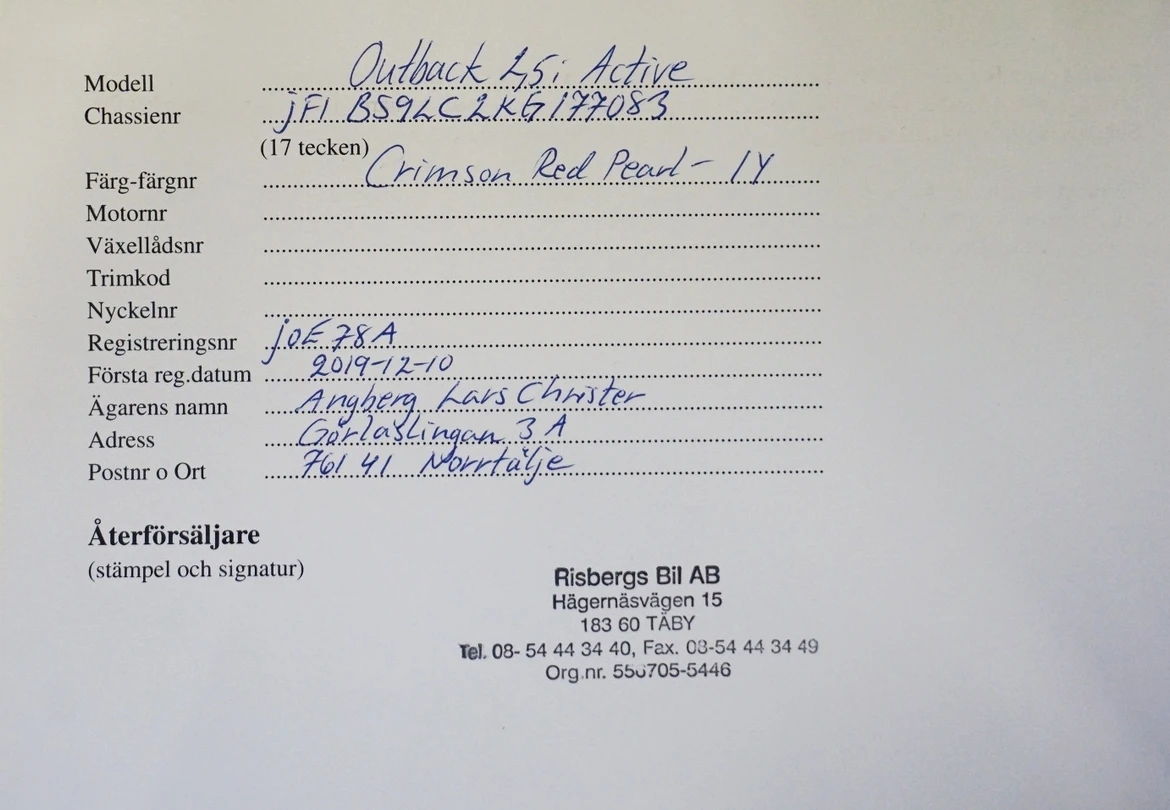 Modell Outback 2,5i Active
Chassienr JF1 BS9LC2KG177083
(17 tecken)
Färg-färgnr Crimson Red Pearl - 1Y
Motornr
Växellådsnr
Trimkod
Nyckelnr
Registreringsnr JOE 78A
Första reg.datum 2019-12-10
Ägarens namn Angberg Lars Christer
Adress Görlaslingan 3 A
Postnr o Ort 761 41 Norrtälje
Återförsäljare
(stämpel och signatur)
Risbergs Bil AB
Hägernäsvägen 15
183 60 TÄBY
Tel. 08- 54 44 34 40, Fax. 08-54 44 34 49
Org.nr. 556705-5446